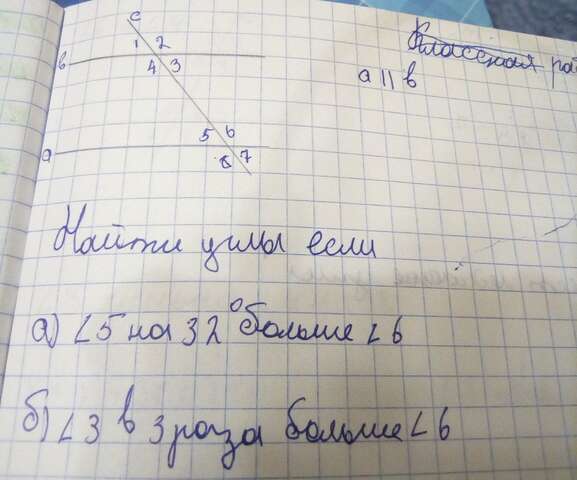 c
Классная ра
a || в
1 2
в
4 3
5 6
a
8 7
Найти углы если
а) ∠5 на 32° больше ∠6
б) ∠3 в 3 раза больше ∠6